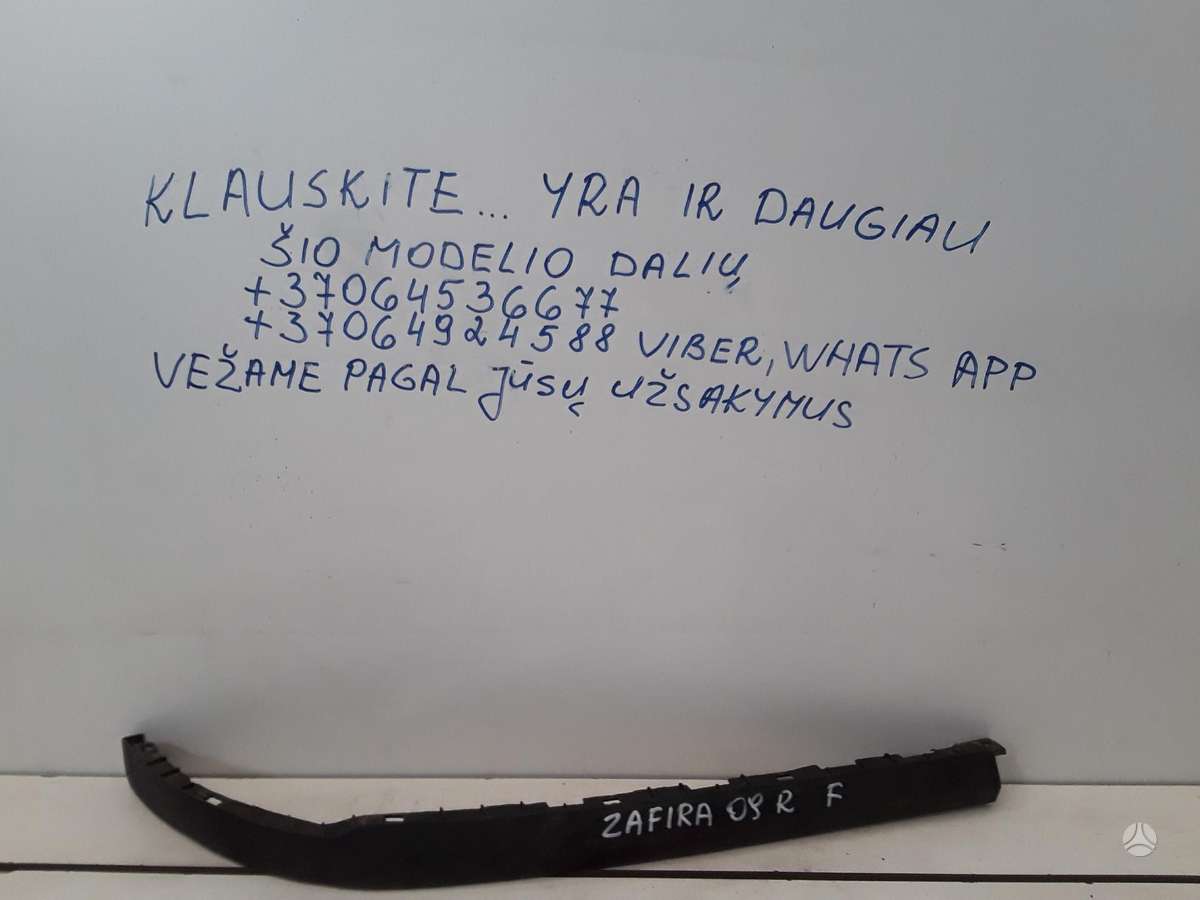 KLAUSKITE... YRA IR DAUGIAU
ŠIO MODELIO DALIŲ
+37064536677
+37064924588 VIBER, WHATS APP
VEŽAME PAGAL JŪSŲ UŽSAKYMUS
ZAFIRA 09 R F